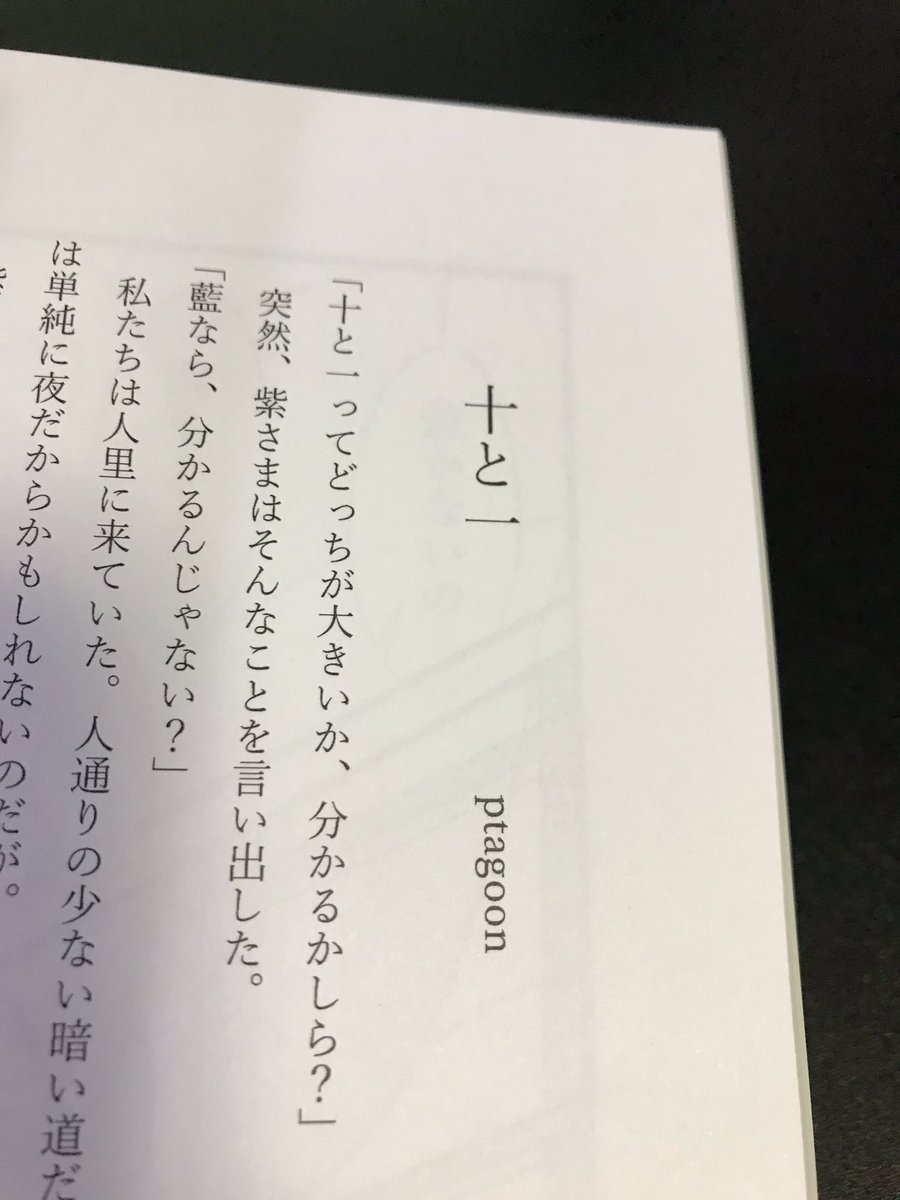 十と一
ptagoon
「十と一ってどっちが大きいか、分かるかしら？」
突然、紫さまはそんなことを言い出した。
「藍なら、分かるんじゃない？」
私たちは人里に来ていた。人通りの少ない暗い道だ
は単純に夜だからかもしれないのだが。